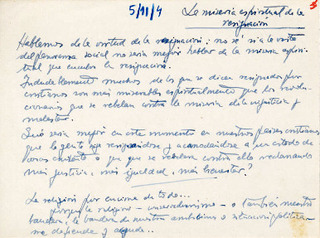 5/11/4
La miseria espiritual de la
resignación
Hablemos de la virtud de la resignación; no sé si a la vista
del panorama social no sería mejor hablar de la miseria espiri-
tual que encubre la resignación.
Indudablemente muchos de los que se dicen resignados por
cristianos son más miserables espiritualmente que los revolu-
cionarios que se rebelan contra la miseria de la injusticia y
malestar.
Qué sería mejor en este momento en nuestros países cristianos
que la gente se resignara y acomodara a un estado de
cosas o que se rebelara contra ello reclamando
más justicia, más igualdad, más bienestar?
La religión por encima de todo...
porque la religión - o también nuestra
bandera, la bandera de nuestras ambiciones
no depende y ayuda...